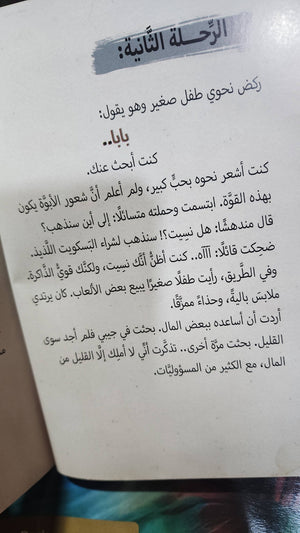 الرِّحلـــة الثَّانية:
ركض نحوي طفل صغير وهو يقول:
بابا..
كنت أبحث عنك.
كنت أشعر نحوه بحبٍّ كبير، ولم أعلم أنَّ شعور الأبوَّة يكون
بهذه القوَّة. ابتسمت وحملته متسائلًا: إلى أين سنذهب؟
قال مندهشًا: هل نسيت؟! سنذهب لشراء البَسكويت اللَّذيذ.
ضحِكت قائلًا: آآآه.. كنت أظنُّ أنَّك نسِيت، ولكنَّك قويُّ الذَّاكرة.
وفي الطَّريق، رأيت طفلًا صغيرًا يبيع بعض الألعاب. كان يرتدي
ملابسَ باليةً، وحذاءً ممزَّقًا.
أردت أن أساعده ببعض المال. بحثت في جيبي فلم أجد سوى
القليل.. بحثت مرَّة أخرى.. تذكَّرت أنِّي لا أملِك إلَّا القليل من
المال، مع الكثير من المسؤوليَّات.